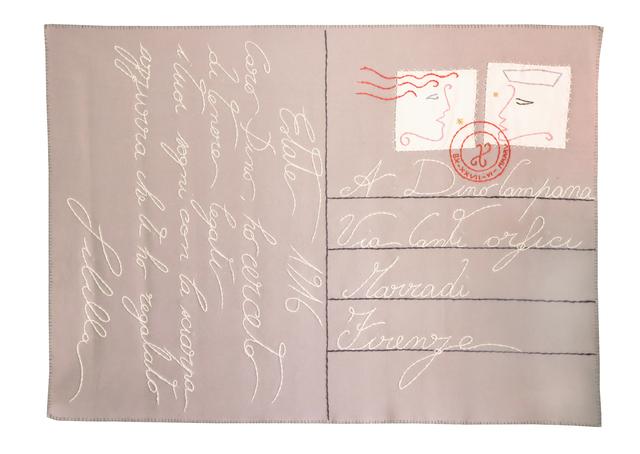 Estate 1916
Caro Dino, ho cercato
di tenere legati
i tuoi sogni con la sciarpa
azzurra che ti ho regalato
Sibilla
A Dino Campana
Via Canti orfici
Marradi
Firenze